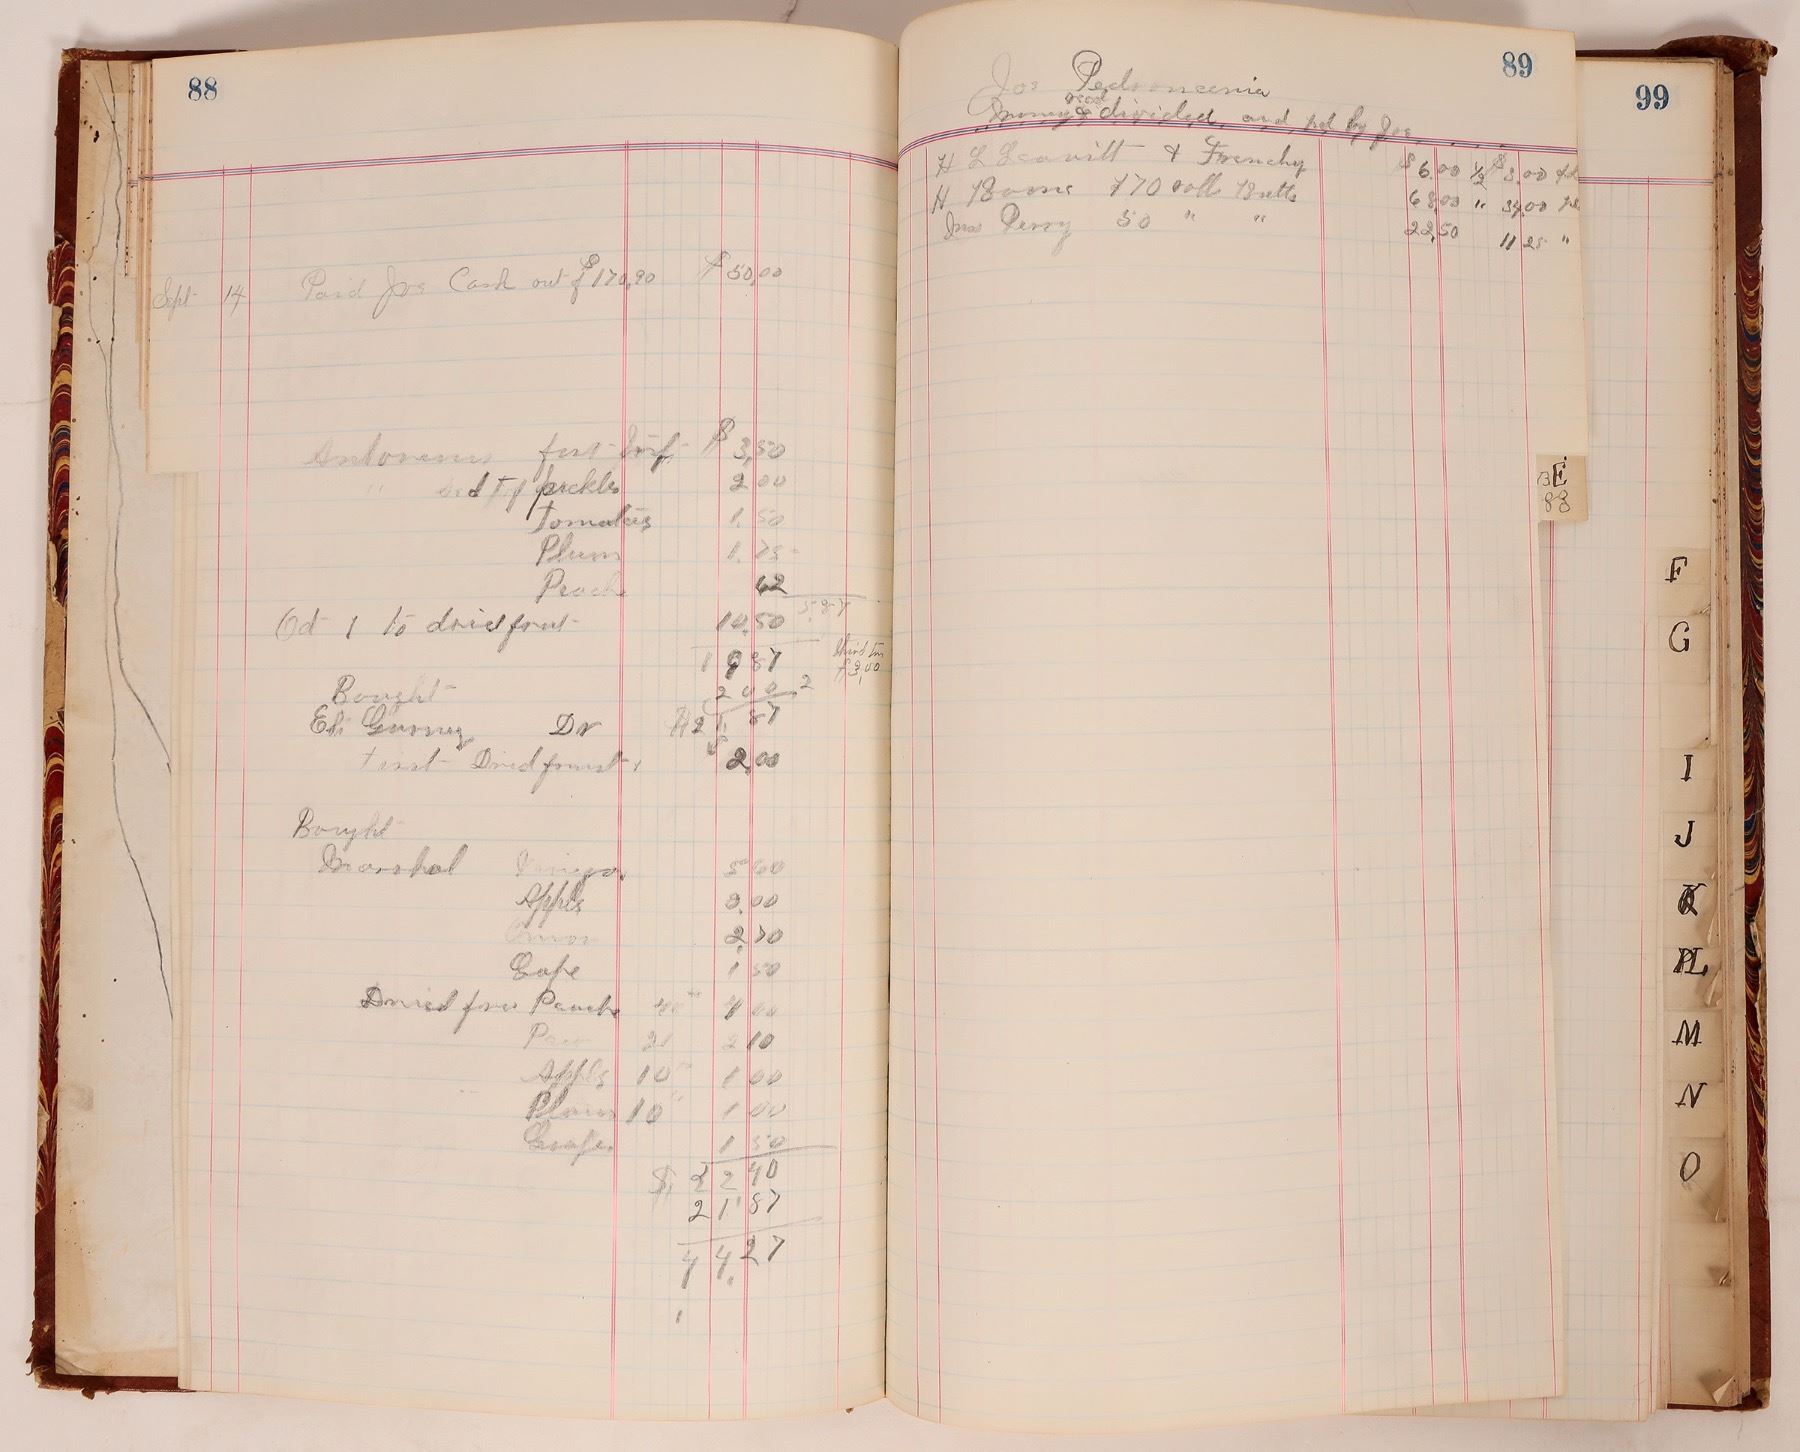 88
Sept 14 Paid Jos Cash out of $170,90 $50,00
first $3,50
" pickles 2 00
Tomatoes 1.50
Plum 1.75
Peach 62
5.87
Oct 1 to dried fruit 14.50
1 9 87
third
$3,00
Bought 2 00 2
Eli Gurney Dr $21 87
first Dried fruit 2,00
Bought
Marshal 5 60
Apples 3.00
2,70
1 50
Dried Peach 40 4 00
21 2 10
Apples 10 1 00
Plum 10 1 00
Grape 1 50
$ 22 40
21 87
44.27
89
Jos
Money recd & divided, and pd by Jos
H L Leavitt & Frenchy $6.00 1/2 $3.00 pd
H Boone 170 rolls 68,00 " 34,00 pd
Jno Perry 50 " " 22,50 11 25 "
99
BE
88
F
G
I
J
K
L
M
N
O